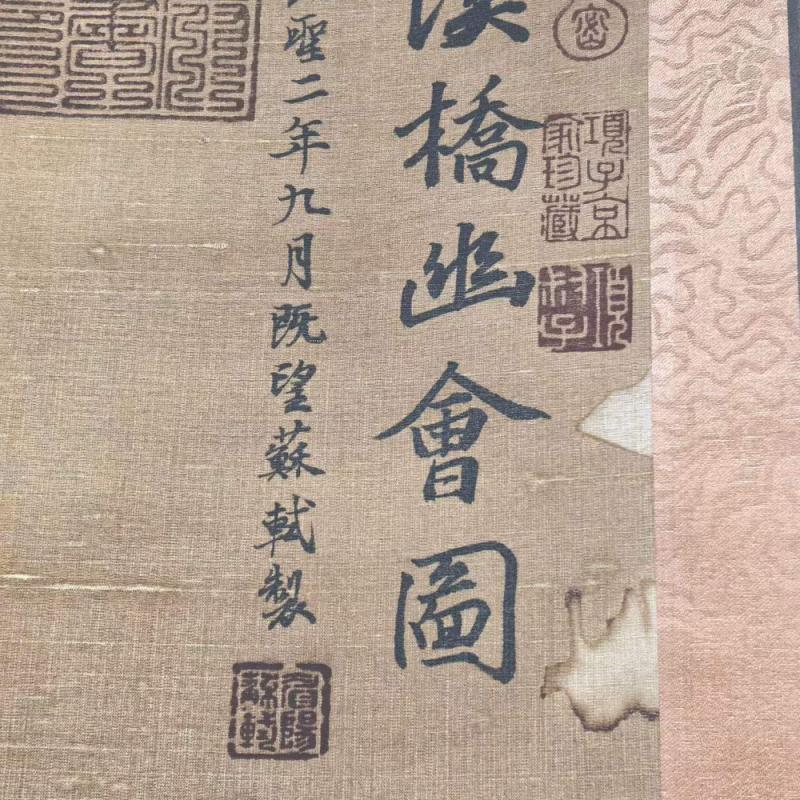 溪橋幽會圖
聖二年九月既望蘇軾製
項子京家珍藏
眉陽蘇軾